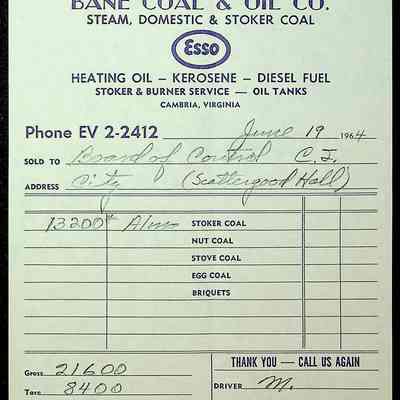 BANE COAL & OIL CO.
STEAM, DOMESTIC & STOKER COAL
Esso
HEATING OIL — KEROSENE — DIESEL FUEL
STOKER & BURNER SERVICE — OIL TANKS
CAMBRIA, VIRGINIA
Phone EV 2-2412 June 19 1964
SOLD TO Board of Control C. I.
ADDRESS City (Scattergood Hall)
13200# STOKER COAL
NUT COAL
STOVE COAL
EGG COAL
BRIQUETS
Gross 21600
Tare 8400
THANK YOU — CALL US AGAIN
DRIVER M.